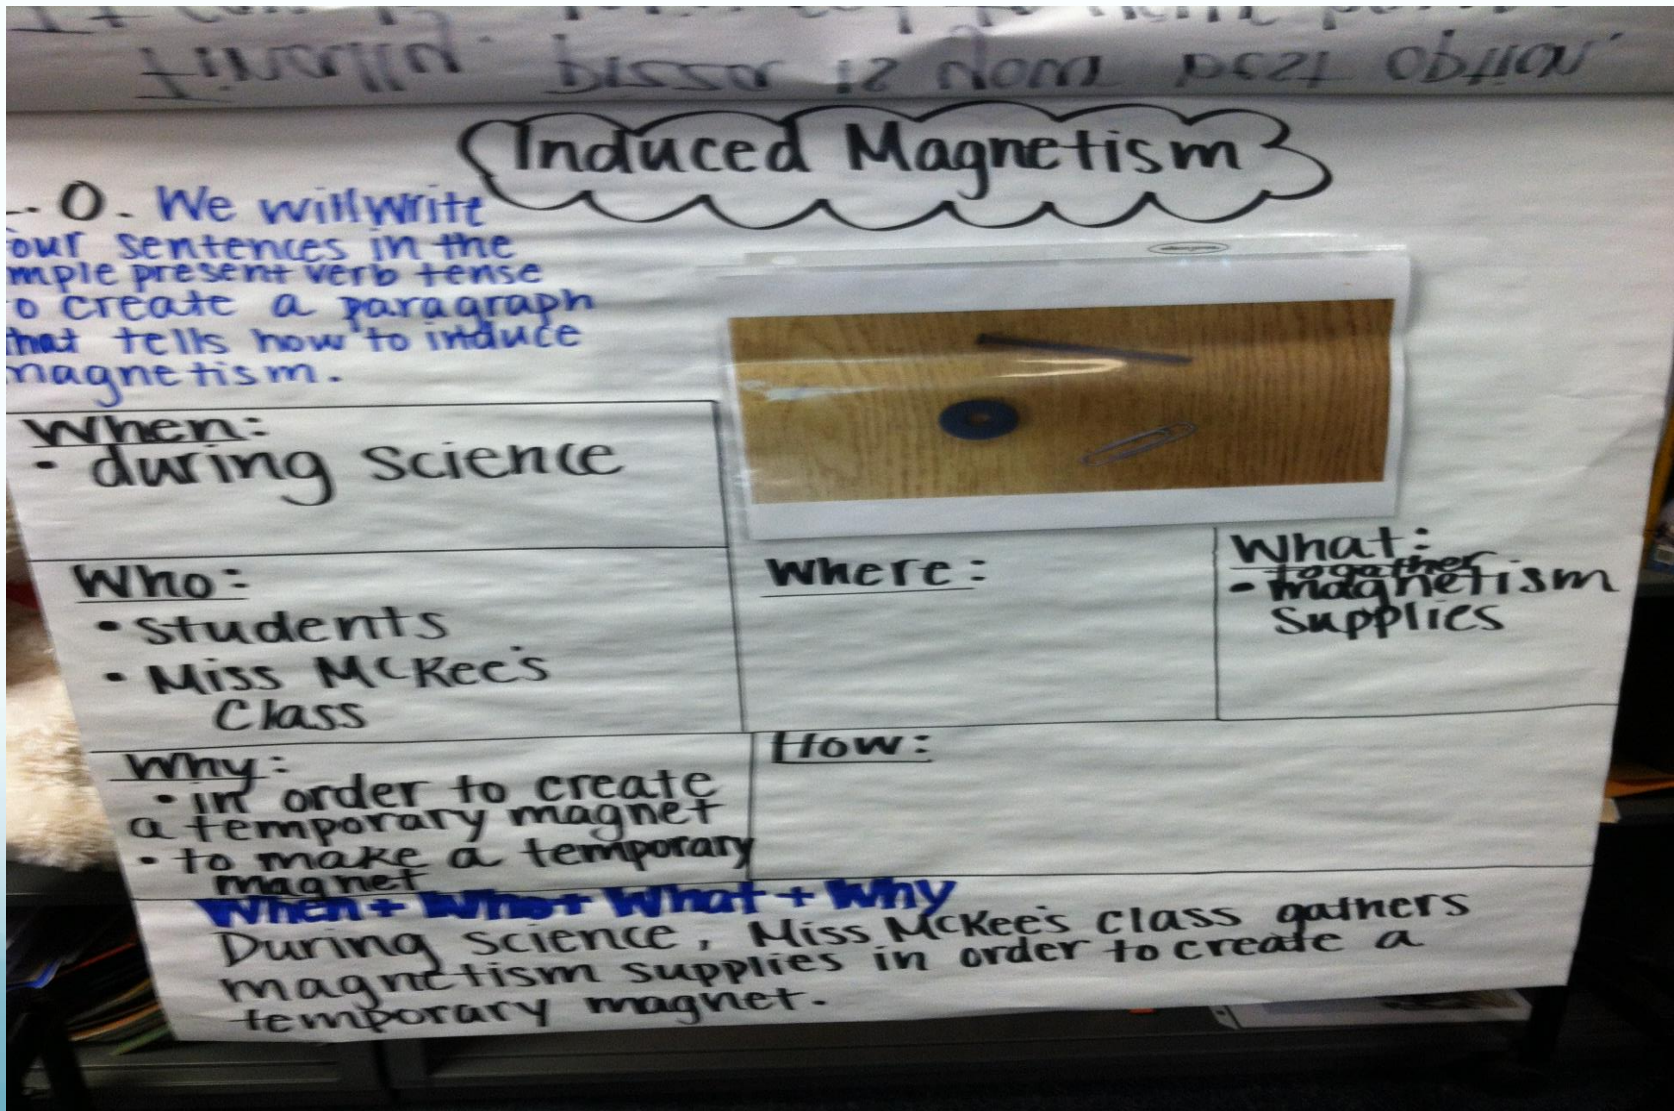 Finally, pizza is your best option.
Induced Magnetism
. O. We will write
our sentences in the
mple present verb tense
o create a paragraph
hat tells how to induce
magnetism.
When:
• during science
Who:
• students
• Miss McKee's
Class
Where:
What:
to gather
• magnetism
supplies
Why:
• in order to create
a temporary magnet
• to make a temporary
magnet
How:
When + Who + What + Why
During science, Miss McKee's class gathers
magnetism supplies in order to create a
temporary magnet.